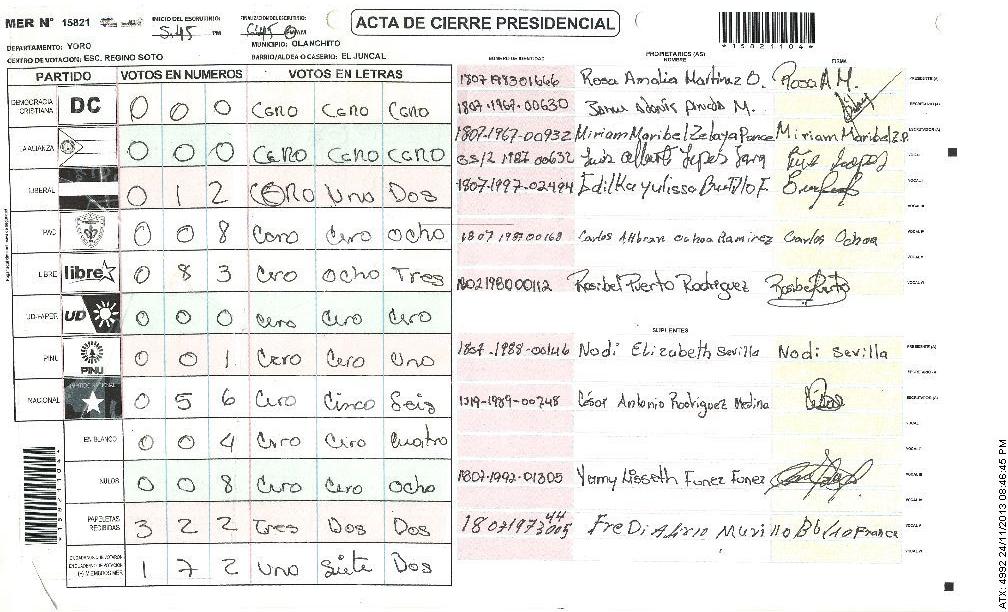 MER N° 15821
INICIO DEL ESCRUTINIO:
5:45 PM
FINALIZACION DEL ESCRUTINIO:
ACTA DE CIERRE PRESIDENCIAL
*15821104*
DEPARTAMENTO: YORO
MUNICIPIO: OLANCHITO
CENTRO DE VOTACION: ESC. REGINO SOTO
BARRIO/ALDEA O CASERIO: EL JUNCAL
PARTIDO VOTOS EN NUMEROS VOTOS EN LETRAS
DEMOCRACIA CRISTIANA DC 0 0 0 Cero Cero Cero
LA ALIANZA 0 0 0 Cero Cero Cero
LIBERAL 0 1 2 Cero Uno Dos
PAC 0 0 8 Cero Cero Ocho
LIBRE libre 0 8 3 Cero Ocho Tres
UD-FAPER UD 0 0 0 Cero Cero Cero
PINU PINU 0 0 1 Cero Cero Uno
NACIONAL 0 5 6 Cero Cinco Seis
EN BLANCO 0 0 4 Cero Cero Cuatro
NULOS 0 0 8 Cero Cero Ocho
PAPELETAS RECIBIDAS 3 2 2 Tres Dos Dos
1 7 2 Uno Siete Dos
*15821104*
NUMERO DE IDENTIDAD
PROPIETARIOS (AS)
NOMBRE
FIRMA
1807 198301666 Rosa Amalia Martinez O. Rosa A M. PRESIDENTE (A)
1807-1967-00630 M. SECRETARIO (A)
1807-1967-00932 Miriam Maribel Zelaya Ponce Miriam Maribel Z.P. ESCRUTADOR (A)
1987 00632 Luis Alberto Lopez Luis Lopez VOCAL I
1807-1997-02494 Edilka Yulissa Bustillo F. VOCAL III
1807 198700168 Carlos Ochoa Ramirez Carlos Ochoa VOCAL IV
1802198000112 Rosibel Puerto Rodriguez Rosibel Puerto VOCAL VI
SUPLENTES
1807-1988-00146 Nodi Elizabeth Sevilla Nodi Sevilla PRESIDENTE (A)
SECRETARIO (A)
1319-1989-00248 César Antonio Rodriguez Medina ESCRUTADOR (A)
VOCAL I
VOCAL II
1807-1992-01305 Yenny Lisseth Funez Funez VOCAL III
VOCAL IV
18071973 Murillo VOCAL V
VOCAL VI
ATX: 4992 24/11/2013 08:46:45 PM